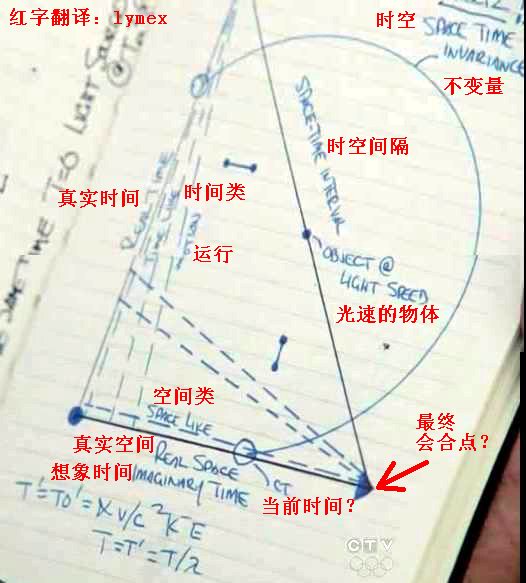 红字翻译：lymex
时空
SPACE TIME
INVARIANCE
不变量
LIGHT
T=0
TIME
SPACE-TIME INTERVAL
时空间隔
真实时间
REAL TIME
时间类
TIME LIKE
运行
OBJECT @
LIGHT SPEED
光速的物体
空间类
SPACE LIKE
真实空间
REAL SPACE
想象时间
IMAGINARY TIME
CT
当前时间？
最终
会合点？
T'=T0'=X V/C²KE
T=T'=T/λ
CTV